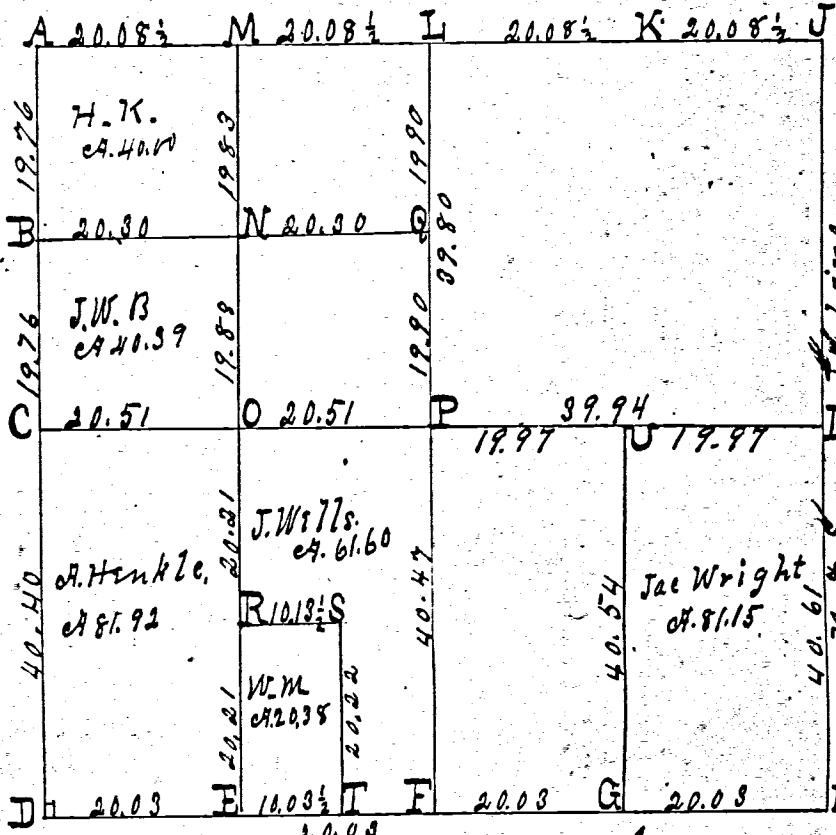 A 20.08½ M 20.08½ L 20.08½ K 20.08½ J
19.76
H. K.
A. 40.10
19.83
19.90
39.80
B 20.30 N 20.30 Q
19.76
J. W. B
A 40.39
19.88
19.90
C 20.51 O 20.51 P 39.94 I
19.97 U 19.97
40.40
A. Henkle,
A 81.92
20.21
J. Wills.
A. 61.60
40.47
40.54
Jac Wright
A. 81.15
40.61
R 10.13½ S
20.21
W. M
A 20,38
20.22
D 20.03 E 10.03½ T F 20.03 G 20.03
20.03